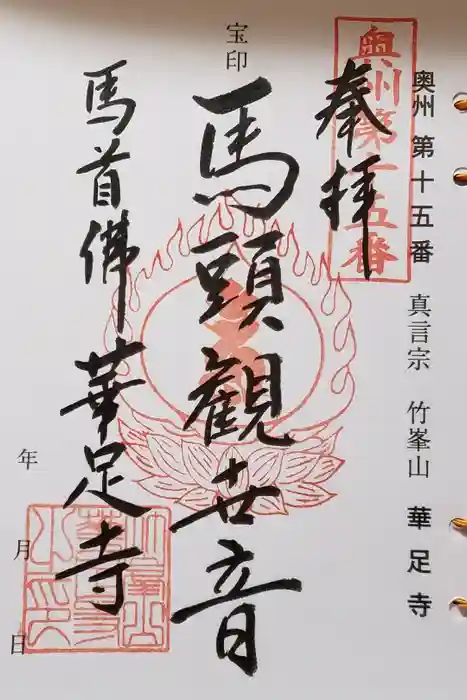 奥州 第十五番 真言宗 竹峯山 華足寺
奥州第十五番
奉拝
宝印
馬頭観世音
馬首佛 華足寺
年 月 日